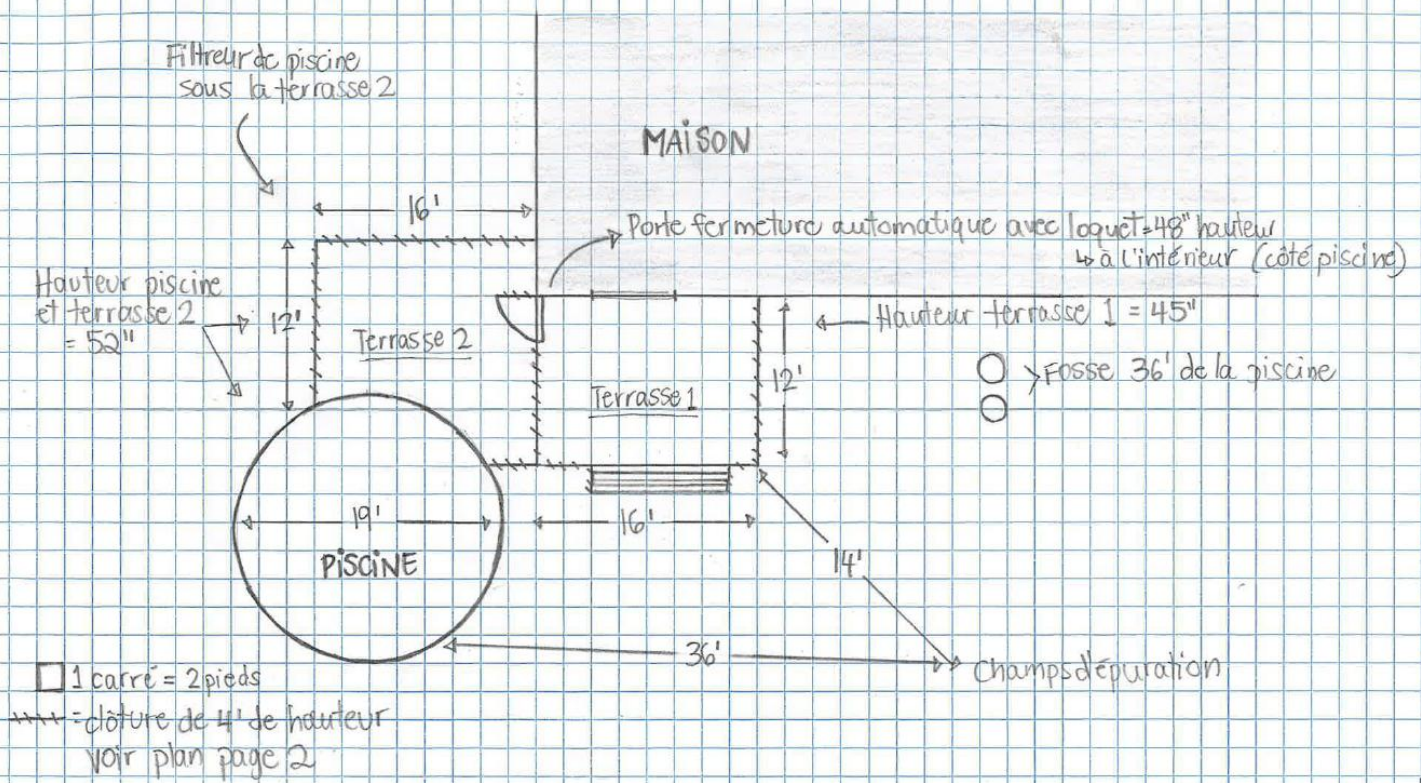 Filtreur de piscine
sous la terrasse 2
MAISON
16'
Porte fermeture automatique avec loquet=48" hauteur
↳ à l'intérieur (côté piscine)
Hauteur piscine
et terrasse 2
= 52"
12'
Terrasse 2
Hauteur terrasse 1 = 45"
12'
Fosse 36' de la piscine
Terrasse 1
19'
16'
PISCINE
14'
36'
Champs d'épuration
1 carré = 2 pieds
= clôture de 4' de hauteur
voir plan page 2